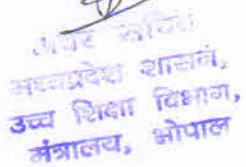 अवर सचिव
मध्यप्रदेश शासन,
उच्च शिक्षा विभाग,
मंत्रालय, भोपाल